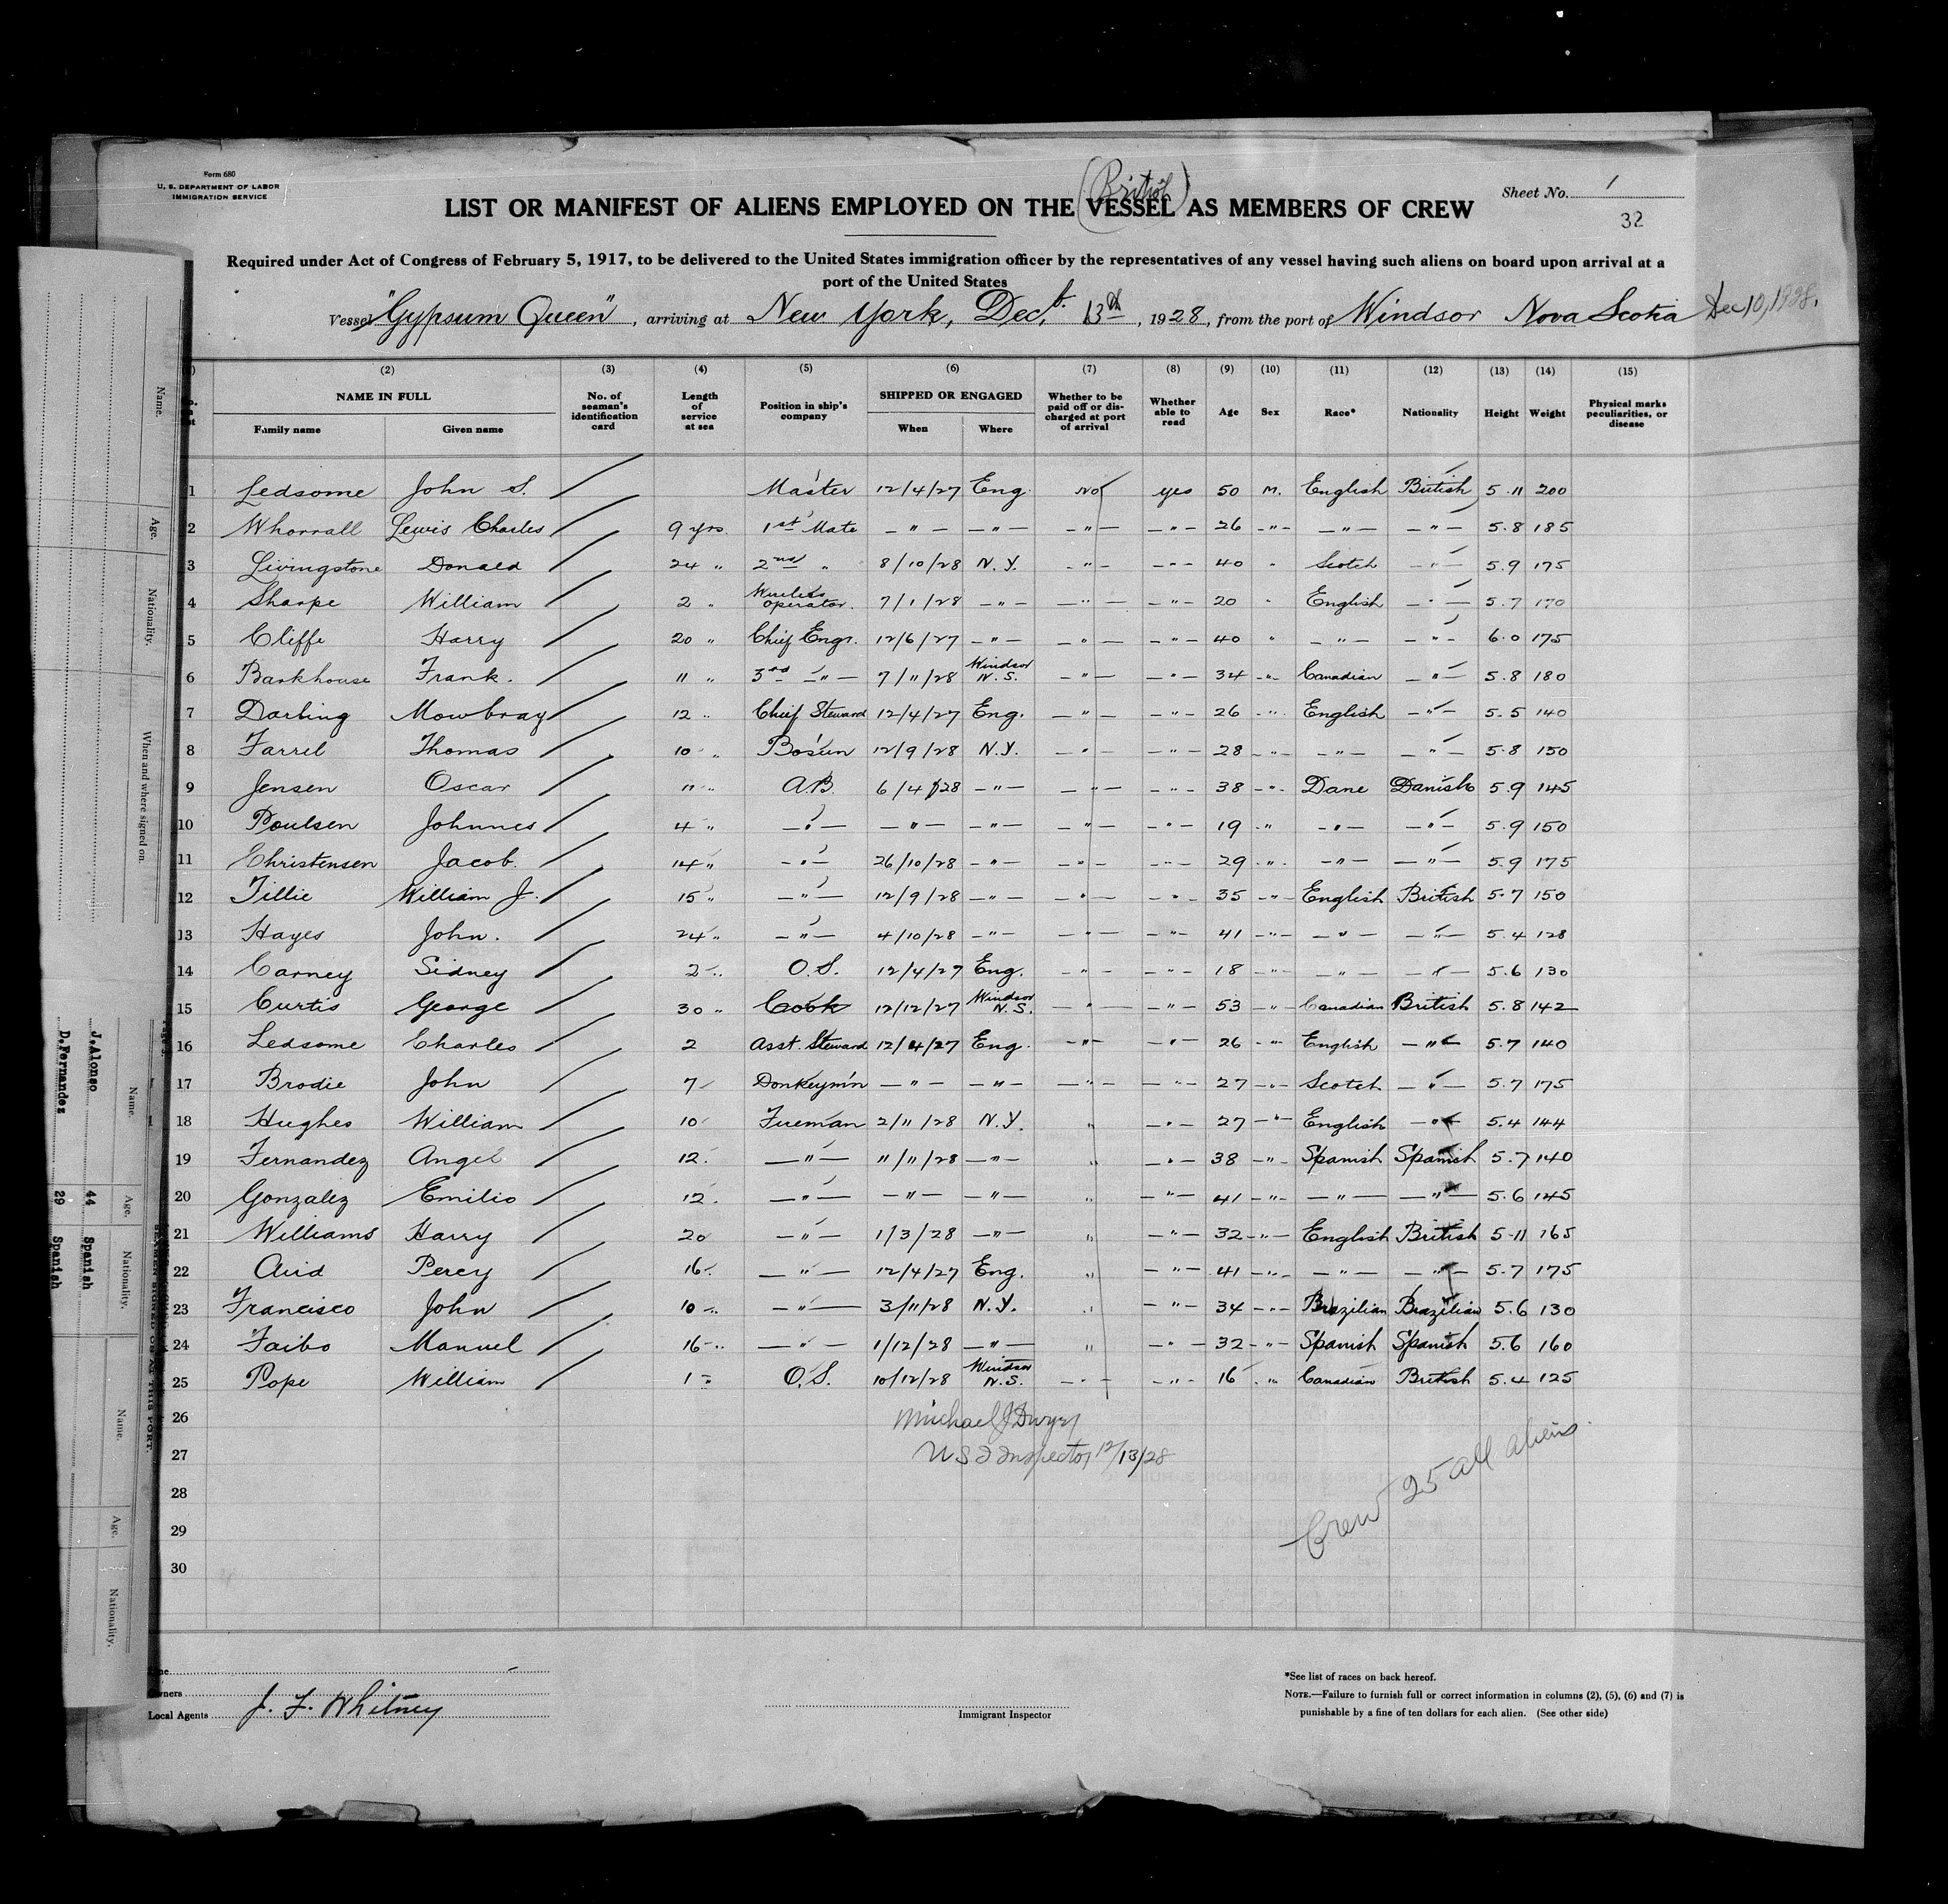 Form 680
U. S. DEPARTMENT OF LABOR
IMMIGRATION SERVICE
(British)
Sheet No. 1
LIST OR MANIFEST OF ALIENS EMPLOYED ON THE VESSEL AS MEMBERS OF CREW
32
Required under Act of Congress of February 5, 1917, to be delivered to the United States immigration officer by the representatives of any vessel having such aliens on board upon arrival at a
port of the United States
Vessel "Gypsum Queen", arriving at New York, Decb. 13th, 1928, from the port of Windsor Nova Scotia Dec 10, 1928.
(2) (3) (4) (5) (6) (7) (8) (9) (10) (11) (12) (13) (14) (15)
NAME IN FULL No. of seaman's identification card Length of service at sea Position in ship's company SHIPPED OR ENGAGED Whether to be paid off or discharged at port of arrival Whether able to read Age Sex Race* Nationality Height Weight Physical marks peculiarities, or disease
Family name Given name When Where
1 Ledsome John S. Master 12/4/27 Eng. No yes 50 M. English British 5.11 200
2 Whorrall Lewis Charles 9 yrs. 1st Mate — " — — " — — " — — " — 26 — " — — " — — " — 5.8 185
3 Livingstone Donald 24 " 2nd " 8/10/28 N.Y. — " — — " — 40 " Scotch — " — 5.9 175
4 Sharpe William 2 " Wireless operator. 7/1/28 — " — — " — — " — 20 " English — " — 5.7 170
5 Cliffe Harry 20 " Chief Engr. 12/6/27 — " — — " — — " — 40 " — " — — " — 6.0 175
6 Barkhouse Frank. 11 " 3rd — " — 7/11/28 Windsor N.S. — " — — " — 34 — " — Canadian — " — 5.8 180
7 Darling Mowbray 12 " Chief Steward 12/4/27 Eng. — " — — " — 26 — " — English — " — 5.5 140
8 Farrel Thomas 10 " Bos'un 12/9/28 N.Y. — " — — " — 28 — " — — " — — " — 5.8 150
9 Jensen Oscar 11 " A.B. 6/4/28 — " — — " — — " — 38 — " — Dane Danish 5.9 145
10 Poulsen Johnnes 4 " — " — — " — — " — — " — — " — 19 — " — " — — " — 5.9 150
11 Christensen Jacob. 14 " — " — 26/10/28 — " — — " — — " — 29 — " — — " — — " — 5.9 175
12 Tillie William J. 15 " — " — 12/9/28 — " — — " — — " — 35 — " — English British 5.7 150
13 Hayes John. 24 " — " — 4/10/28 — " — — " — — " — 41 — " — — " — — " — 5.4 128
14 Carney Sidney 2 " O.S. 12/4/27 Eng. — " — — " — 18 — " — — " — — " — 5.6 130
15 Curtis George 30 " Cook 12/12/27 Windsor N.S. — " — — " — 53 — " — Canadian British 5.8 142
16 Ledsome Charles 2 Asst. Steward 12/4/27 Eng. — " — — " — 26 — " — English — " — 5.7 140
17 Brodie John 7 Donkeym'n — " — — " — — " — — " — 27 — " — Scotch — " — 5.7 175
18 Hughes William 10 Fireman 2/11/28 N.Y. " — " — 27 — " — English — " — 5.4 144
19 Fernandez Angel 12. — " — 11/11/28 — " — " — " — 38 — " — Spanish Spanish 5.7 140
20 Gonzalez Emilio 12. — " — — " — — " — " — " — 41 — " — — " — — " — 5.6 145
21 Williams Harry 20 — " — 1/3/28 — " — " — " — 32 — " — English British 5-11 165
22 Percy 16 — " — 12/4/27 Eng. " — " — 41 — " — — " — — " — 5.7 175
23 Francisco John 10 — " — 3/11/28 N.Y. " — " — 34 — " — Brazilian Brazilian 5.6 130
24 Faibo Manuel 16 — " — 1/12/28 — " — " — " — 32 — " — Spanish Spanish 5.6 160
25 Pope William 1 O.S. 10/12/28 Windsor N.S. — " — — " — 16 " Canadian British 5.4 125
26 Michael J Dwyer
27 U S I Inspector 12/13/28
28
29
30
Crew 25 all aliens
Owners
Local Agents J. F. Whitney
Immigrant Inspector
*See list of races on back hereof.
NOTE.—Failure to furnish full or correct information in columns (2), (5), (6) and (7) is
punishable by a fine of ten dollars for each alien. (See other side)
Name. Age. Nationality. When and where signed on.
Name. Age. Nationality.
J.Alonso 44 Spanish
D.Fernandez 29 Spanish
Name. Age. Nationality.